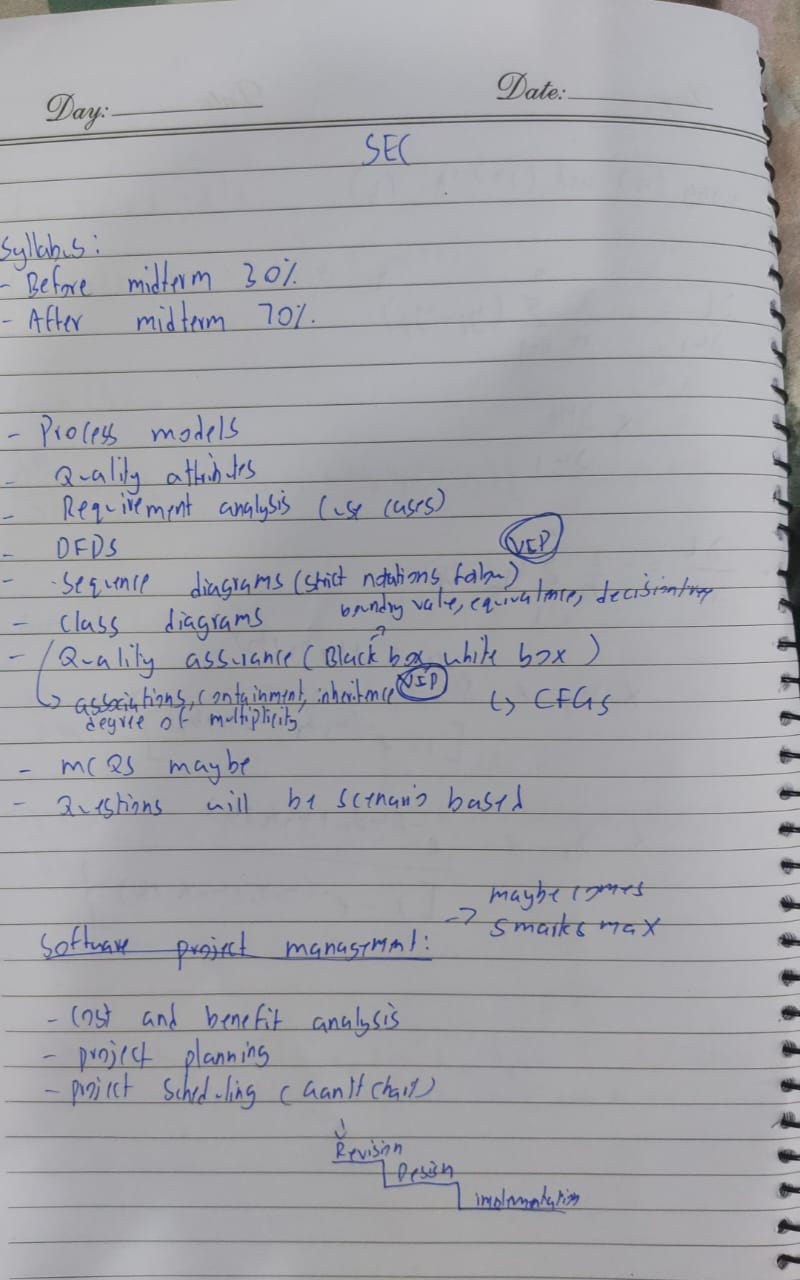 Day: Date:
SEC
Syllabus:
- Before midterm 30%.
- After midterm 70%.
- Process models
- Quality attributes
- Requirement analysis (use cases)
- DFDS
VIP
- Sequence diagrams (strict notations follow)
- Class diagrams
boundry value, equivalence, decision tree
- Quality assurance (Black box white box)
↳ associations, containment, inheritence VIP
degree of multiplicity
↳ CFGs
- MCQS maybe
- Questions will be scenario based
→ maybe comes
5 marks max
Software project management:
- Cost and benefit analysis
- project planning
- project scheduling (Gantt chart)
↓
Revision
Design
implementation